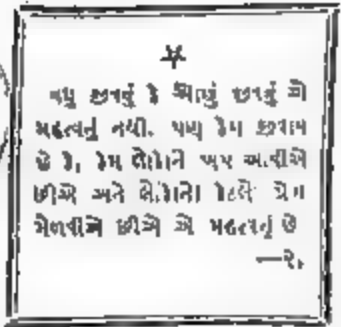 વધુ જીવવું કે ઓછું જીવવું એ
મહત્વનું નથી. પણ કેમ જીવાય
છે કે, કેમ લોકોને ખપ આવીએ
છીએ અને લોકોનો કેટલો પ્રેમ
મેળવીએ છીએ એ મહત્વનું છે
—ર.